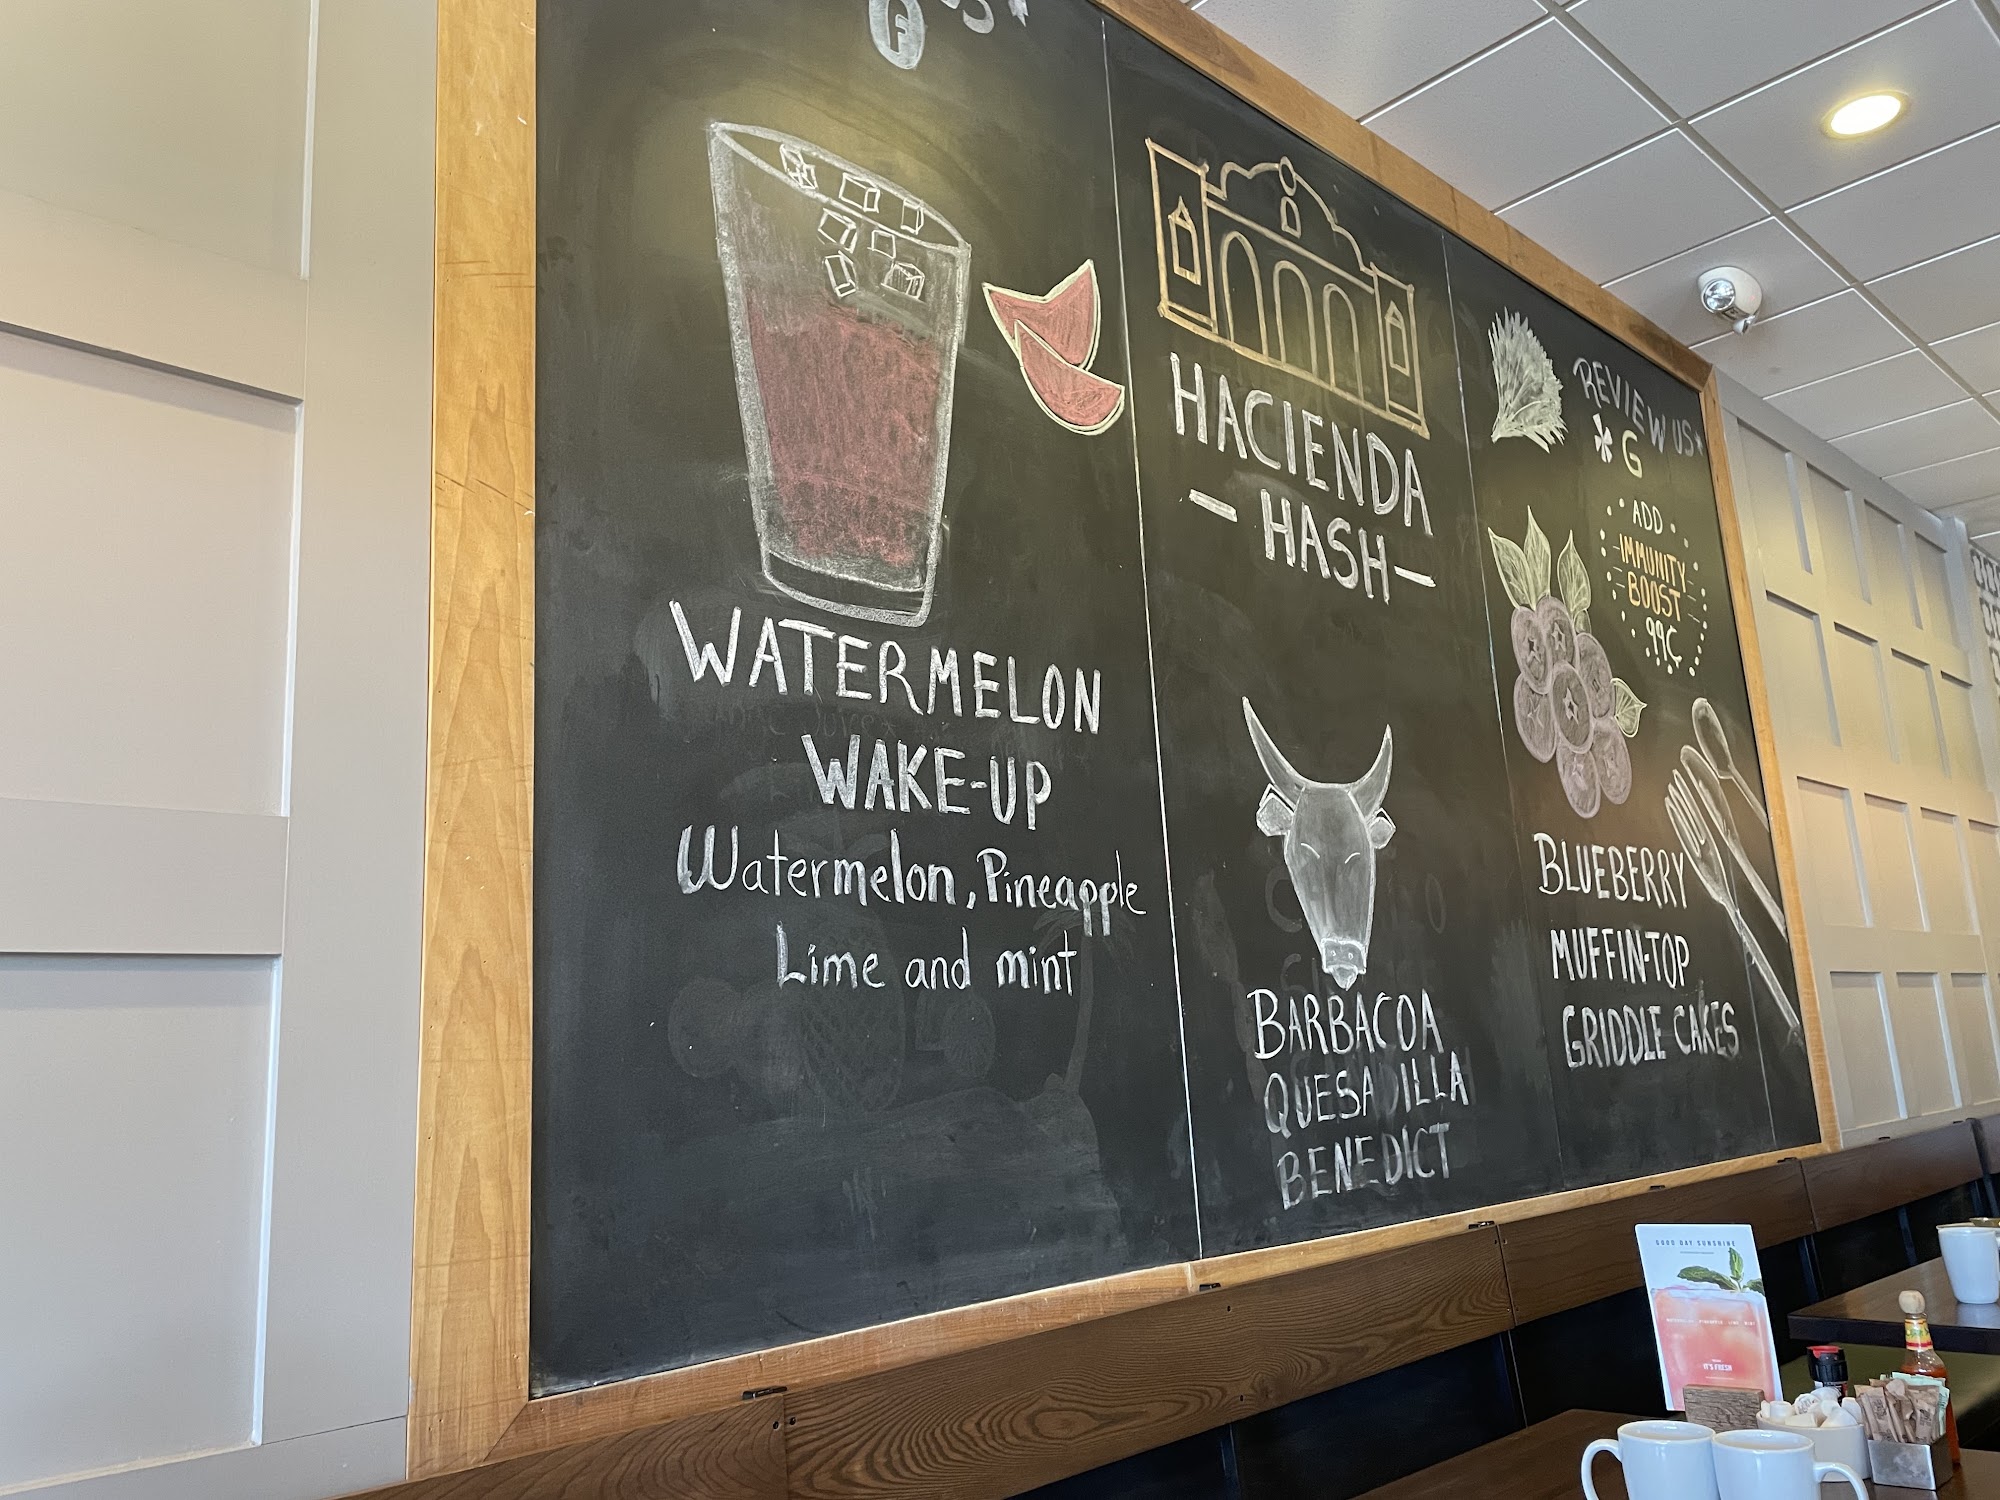 F
WATERMELON
WAKE-UP
Watermelon, Pineapple
Lime and mint
HACIENDA
- HASH -
BARBACOA
QUESADILLA
BENEDICT
REVIEW US
G
ADD
IMMUNITY
BOOST
99¢
BLUEBERRY
MUFFIN-TOP
GRIDDLE CAKES
GOOD DAY SUNSHINE
IT'S FRESH